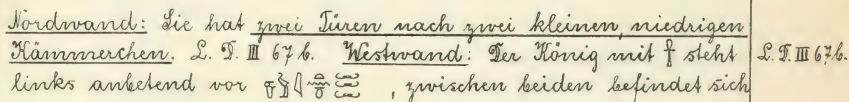 Nordwand: Sie hat zwei Türen nach zwei kleinen, niedrigen
Kämmerchen. L. D. III 67 b. Westwand: Der König mit 𓋹 steht L. D. III 67 b.
links anbetend vor , zwischen beiden befindet sich